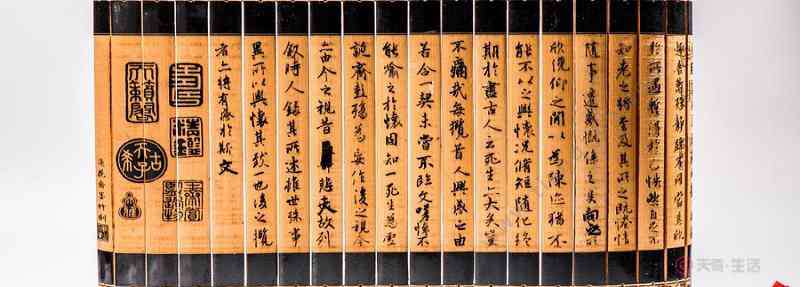 趣舍萬殊靜躁不同當其欣
於所遇暫得於己怏然自足不
知老之將至及其所之既惓情
隨事遷感慨係之矣向之所
欣俛仰之閒以為陳迹猶不
能不以之興懷況脩短隨化終
期於盡古人云死生亦大矣豈
不痛哉每攬昔人興感之由
若合一契未嘗不臨文嗟悼不
能喻之於懷固知一死生為虛
誕齊彭殤為妄作後之視今
亦由今之視昔悲夫故列
敘時人錄其所述雖世殊事
異所以興懷其致一也後之攬
者亦將有感於斯文
天奇·生活